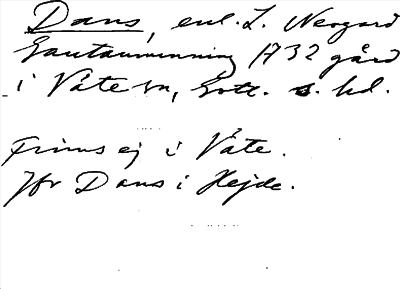 Dans, enl. L. Neogard
Gautauminning 1732 gård
i Väte sn, Gotl. s. hd.
Finns ej i Väte.
Jfr Dans i Hejde.